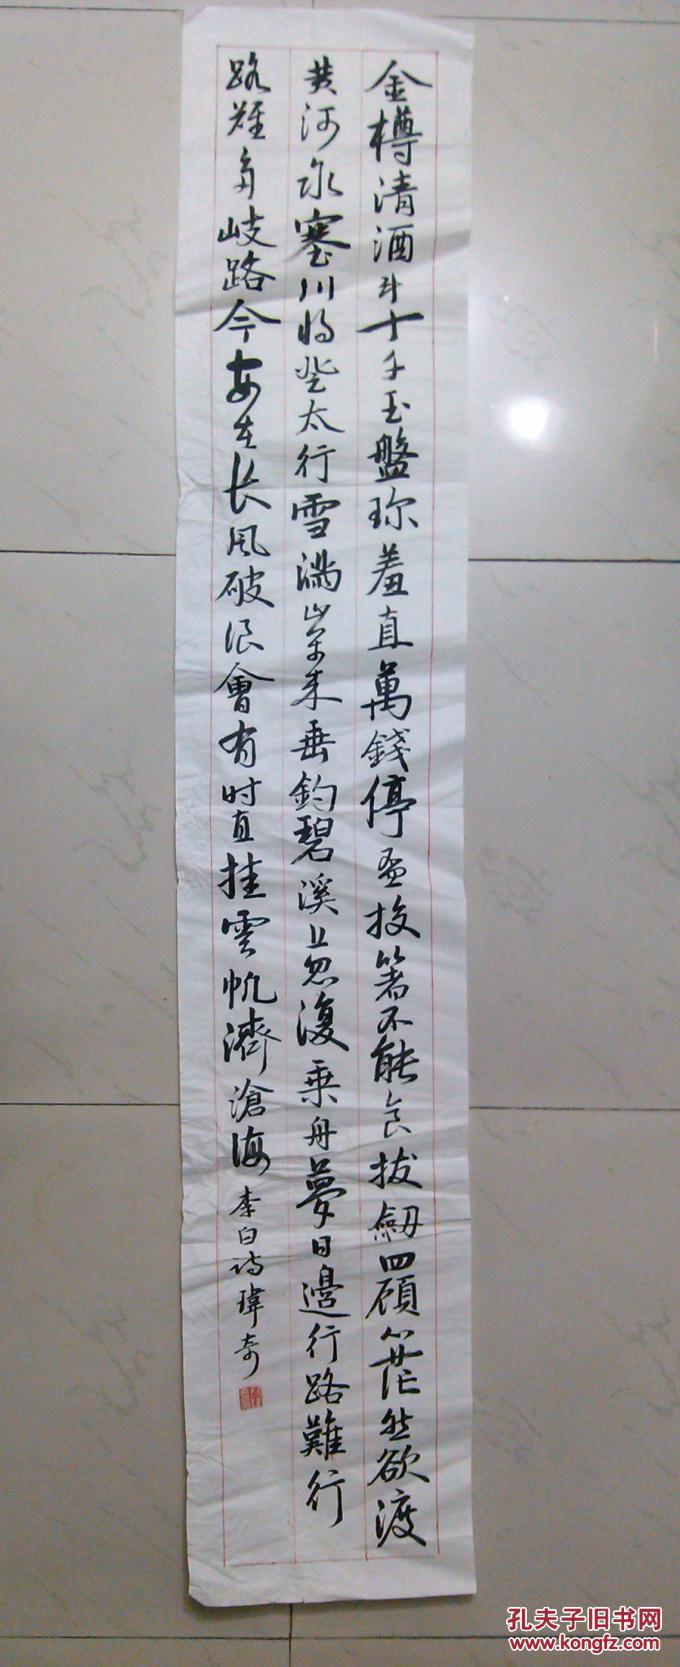 金樽清酒斗十千玉盤珎羞直萬錢停盃投箸不能食拔劔四顧心茫然欲渡
黄河冰塞川将登太行雪满山閑来垂釣碧溪上忽復乗舟夢日邊行路難行
路難多岐路今安在长风破浪會有时直挂雲帆濟滄海李白诗瑋奇
孔夫子旧书网
www.kongfz.com